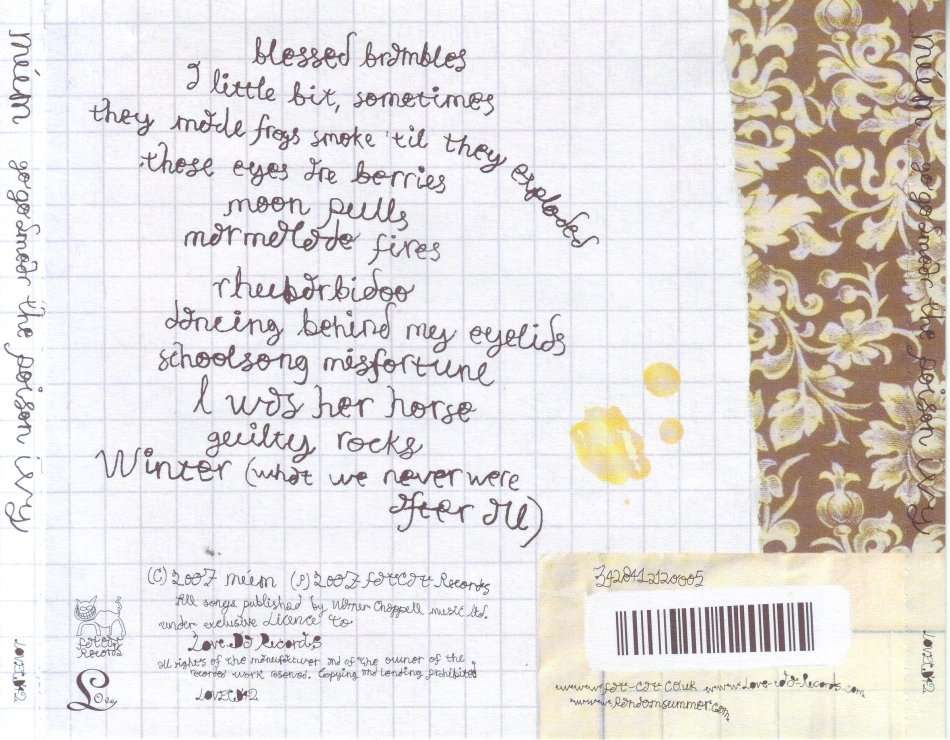 múm gogosmear the poison ivy
blessed brambles
a little bit, sometimes
they made frogs smoke 'til they exploded
these eyes are berries
moon pulls
marmalade fires
rhuubarbidoo
dancing behind my eyelids
schoolsong misfortune
I was her horse
guilty rocks
Winter (what we never were
after all)
(C) 2007 múm (P) 2007 FatCat Records
All songs published by Warner Chappell music Ltd.
under exclusive Licence to
Love Da Records
all rights of the manufacturer and of the owner of the
recorded work reserved. Copying and lending prohibited
FatCat
Records
Love
www.fat-cat.co.uk www.Love-da-Records.com
www.Randomsummer.com
múm gogosmear the poison ivy